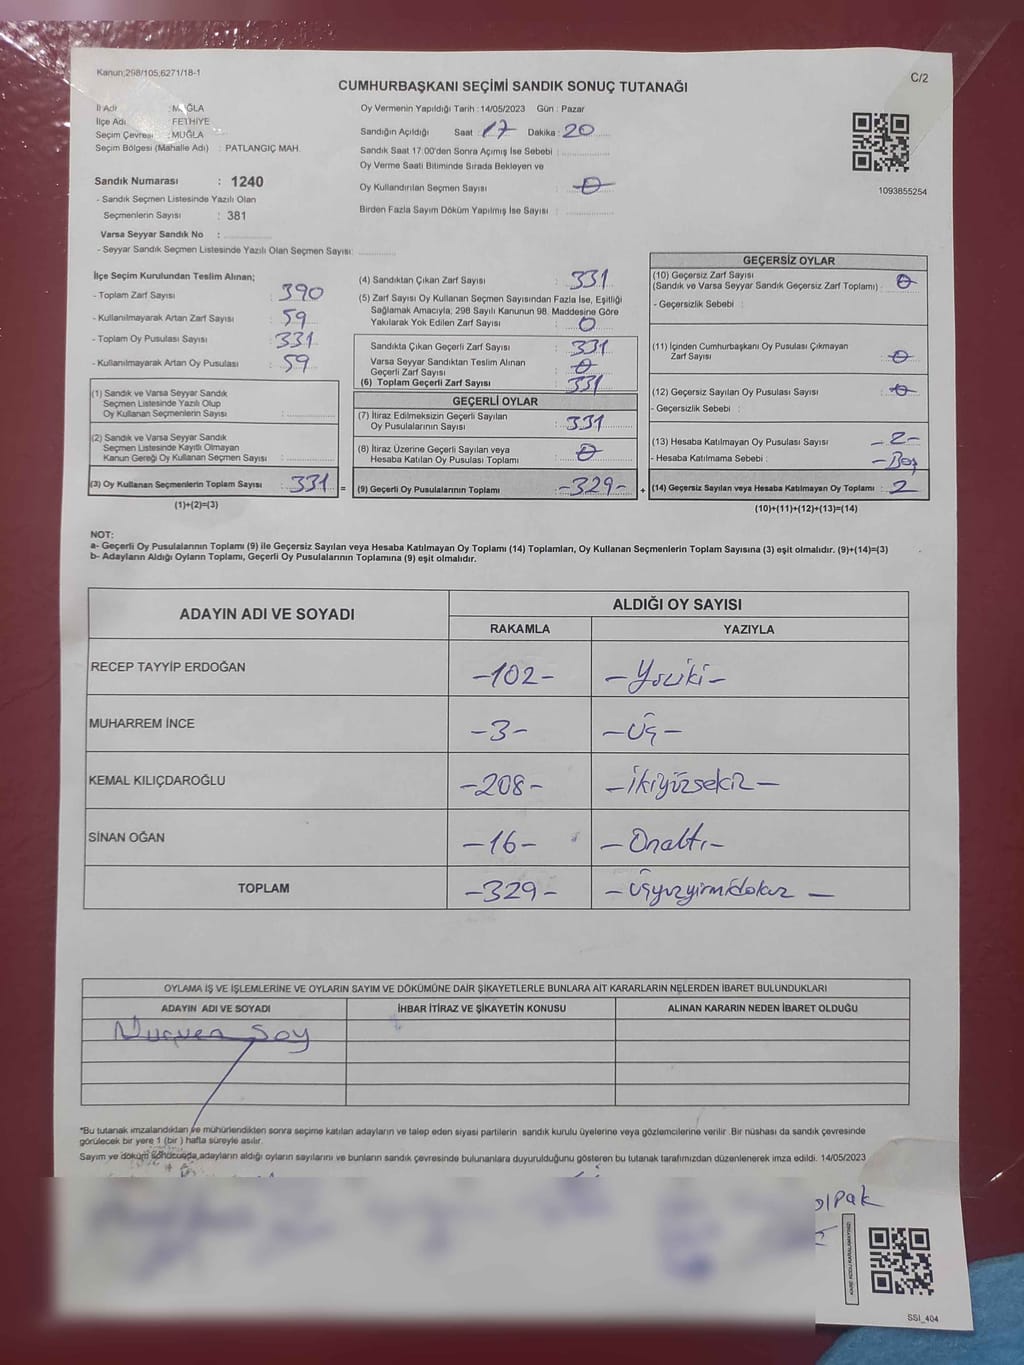 Kanun;298/105,6271/18-1
C/2
CUMHURBAŞKANI SEÇİMİ SANDIK SONUÇ TUTANAĞI
İl Adı : MUĞLA
İlçe Adı : FETHİYE
Seçim Çevresi : MUĞLA
Seçim Bölgesi (Mahalle Adı) : PATLANGIÇ MAH.
Oy Vermenin Yapıldığı Tarih : 14/05/2023 Gün : Pazar
Sandığın Açıldığı Saat : 17 Dakika : 20
Sandık Saat 17:00'den Sonra Açımış İse Sebebi :
Oy Verme Saati Bitiminde Sırada Bekleyen ve
Oy Kullandırılan Seçmen Sayısı : 0
Birden Fazla Sayım Döküm Yapılmış İse Sayısı :
1093855254
Sandık Numarası : 1240
- Sandık Seçmen Listesinde Yazılı Olan
Seçmenlerin Sayısı : 381
Varsa Seyyar Sandık No :
- Seyyar Sandık Seçmen Listesinde Yazılı Olan Seçmen Sayısı:
İlçe Seçim Kurulundan Teslim Alınan;
- Toplam Zarf Sayısı : 390
- Kullanılmayarak Artan Zarf Sayısı : 59
- Toplam Oy Pusulası Sayısı : 331
- Kullanılmayarak Artan Oy Pusulası : 59
(1) Sandık ve Varsa Seyyar Sandık
Seçmen Listesinde Yazılı Olup
Oy Kullanan Seçmenlerin Sayısı :
(2) Sandık ve Varsa Seyyar Sandık
Seçmen Listesinde Kayıtlı Olmayan
Kanun Gereği Oy Kullanan Seçmen Sayısı :
(3) Oy Kullanan Seçmenlerin Toplam Sayısı : 331 =
(1)+(2)=(3)
(4) Sandıktan Çıkan Zarf Sayısı : 331
(5) Zarf Sayısı Oy Kullanan Seçmen Sayısından Fazla İse, Eşitliği
Sağlamak Amacıyla, 298 Sayılı Kanunun 98. Maddesine Göre
Yakılarak Yok Edilen Zarf Sayısı : 0
Sandıkta Çıkan Geçerli Zarf Sayısı : 331
Varsa Seyyar Sandıktan Teslim Alınan
Geçerli Zarf Sayısı : 0
(6) Toplam Geçerli Zarf Sayısı : 331
GEÇERLİ OYLAR
(7) İtiraz Edilmeksizin Geçerli Sayılan
Oy Pusulalarının Sayısı : 331
(8) İtiraz Üzerine Geçerli Sayılan veya
Hesaba Katılan Oy Pusulası Toplamı : 0
(9) Geçerli Oy Pusulalarının Toplamı : -329- +
GEÇERSİZ OYLAR
(10) Geçersiz Zarf Sayısı
(Sandık ve Varsa Seyyar Sandık Geçersiz Zarf Toplamı) : 0
- Geçersizlik Sebebi :
(11) İçinden Cumhurbaşkanı Oy Pusulası Çıkmayan
Zarf Sayısı : 0
(12) Geçersiz Sayılan Oy Pusulası Sayısı : 0
- Geçersizlik Sebebi :
(13) Hesaba Katılmayan Oy Pusulası Sayısı : -2-
- Hesaba Katılmama Sebebi : -Boş
(14) Geçersiz Sayılan veya Hesaba Katılmayan Oy Toplamı : 2
(10)+(11)+(12)+(13)=(14)
NOT:
a- Geçerli Oy Pusulalarının Toplamı (9) ile Geçersiz Sayılan veya Hesaba Katılmayan Oy Toplamı (14) Toplamları, Oy Kullanan Seçmenlerin Toplam Sayısına (3) eşit olmalıdır. (9)+(14)=(3)
b- Adayların Aldığı Oyların Toplamı, Geçerli Oy Pusulalarının Toplamına (9) eşit olmalıdır.
ADAYIN ADI VE SOYADI ALDIĞI OY SAYISI
RAKAMLA YAZIYLA
RECEP TAYYİP ERDOĞAN -102- -Yüziki-
MUHARREM İNCE -3- -Üç-
KEMAL KILIÇDAROĞLU -208- -İkiyüzsekiz-
SİNAN OĞAN -16- -Onaltı-
TOPLAM -329- -Üçyüzyirmidokuz-
OYLAMA İŞ VE İŞLEMLERİNE VE OYLARIN SAYIM VE DÖKÜMÜNE DAİR ŞİKAYETLERLE BUNLARA AİT KARARLARIN NELERDEN İBARET BULUNDUKLARI
ADAYIN ADI VE SOYADI İHBAR İTİRAZ VE ŞİKAYETİN KONUSU ALINAN KARARIN NEDEN İBARET OLDUĞU
Soy
*Bu tutanak imzalandıktan ve mühürlendikten sonra seçime katılan adayların ve talep eden siyasi partilerin sandık kurulu üyelerine veya gözlemcilerine verilir. Bir nüshası da sandık çevresinde
görülecek bir yere 1 (bir ) hafta süreyle asılır.
Sayım ve döküm sonucunda,adayların aldığı oyların sayılarını ve bunların sandık çevresinde bulunanlara duyurulduğunu gösteren bu tutanak tarafımızdan düzenlenerek imza edildi. 14/05/2023
KARE KODU KARALAMAYINIZ!
SSI_404